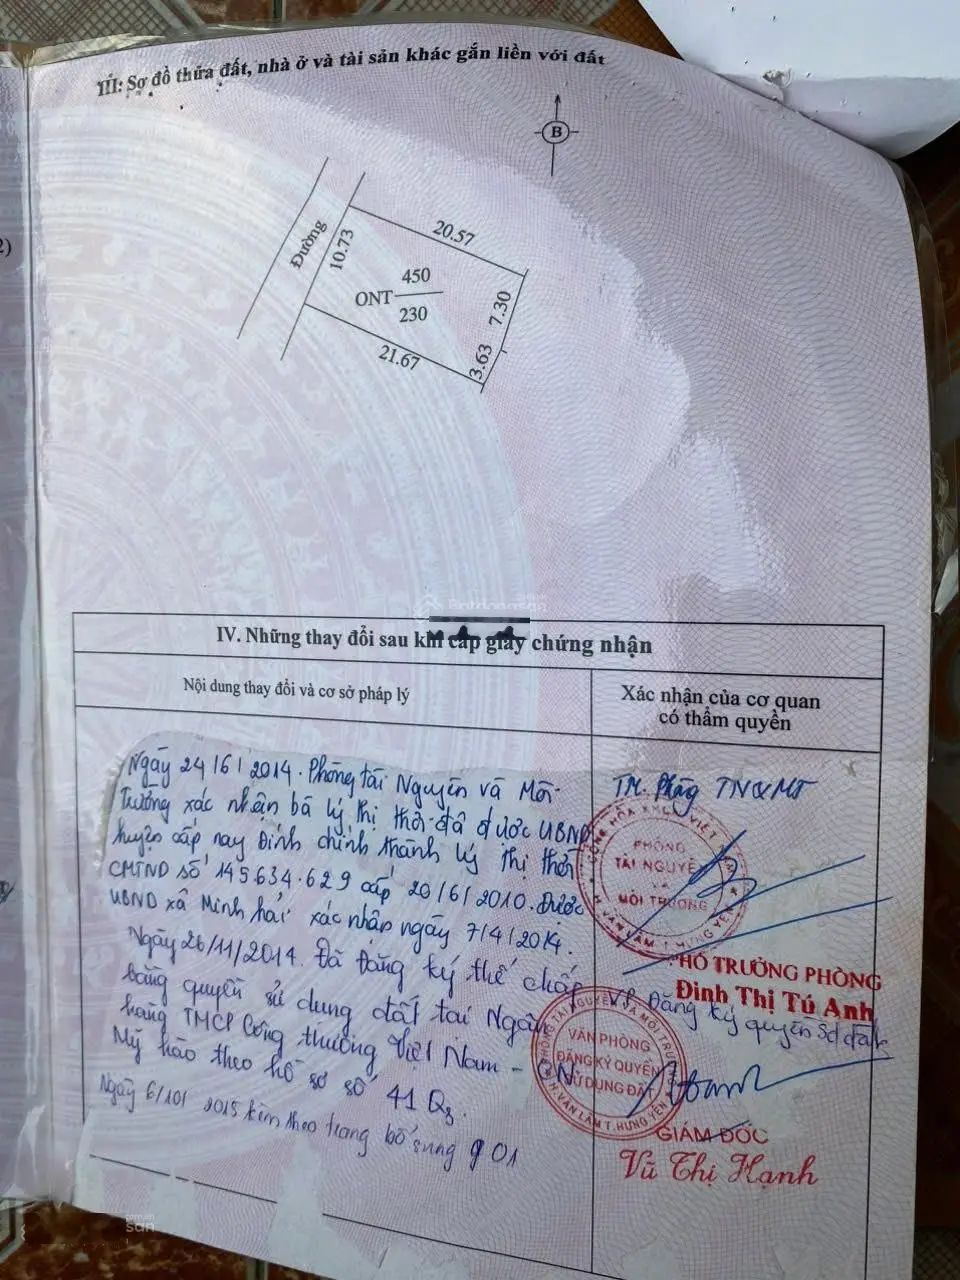 III: Sơ đồ thửa đất, nhà ở và tài sản khác gắn liền với đất
B
Đường
10.73
20.57
ONT 450
230
7.30
3.63
21.67
2)
IV. Những thay đổi sau khi cấp giấy chứng nhận
Nội dung thay đổi và cơ sở pháp lý
Xác nhận của cơ quan
có thẩm quyền
Ngày 24/6/2014. Phòng tài Nguyên và Môi
Trường xác nhận bà lý thị thơi đã được UBND
huyện cấp nay Đính chính thành lý thị thơi
CMTND số 145.634.629 cấp 20/6/2010. Được
UBND xã Minh hải xác nhận ngày 7/4/2014.
Ngày 26/11/2014. Đã Đăng ký thế chấp
bằng quyền sử dụng đất tại Ngân
hàng TMCP Công thương Việt Nam - CN
Mỹ hào theo hồ sơ số 41 Q3.
Ngày 6/10/2015 kèm theo trang bổ sung 01
TM. Phòng TN&MT
PHÒNG
TÀI NGUYÊN
VÀ
MÔI TRƯỜNG
H. VĂN LÂM T. HƯNG YÊN
PHÓ TRƯỞNG PHÒNG
Đinh Thị Tú Anh
VP Đăng ký quyền sd đất
VĂN PHÒNG
ĐĂNG KÝ QUYỀN
SỬ DỤNG ĐẤT
H. VĂN LÂM T. HƯNG YÊN
GIÁM ĐỐC
Vũ Thị Hạnh